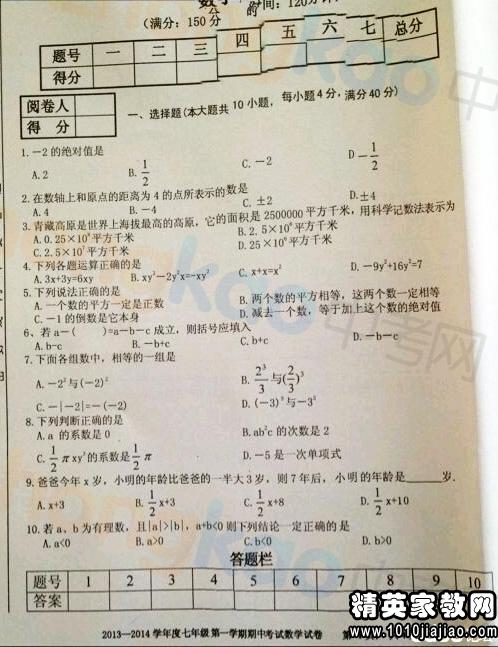 (满分：150分 时间：120分
题号 一 二 三 四 五 六 七 总分
得分
阅卷人
得 分
一、选择题(本大题共10小题，每小题4分，满分40分)
1.-2的绝对值是
A.2 B.1/2 C.-2 D-1/2
2.在数轴上和原点的距离为4的点所表示的数是
A.4 B.-4 C.±2 D.±4
3.青藏高原是世界上海拔最高的高原，它的面积是2500000平方千米，用科学记数法表示为
A.0.25×10⁶平方千米 B.2.5×10⁶平方千米
C.2.5×10⁷平方千米 D.25×10⁶平方千米
4.下列各题运算正确的是
A.3x+3y=6xy B.xy²-2y²x=-xy² C.x+x=x² D.-9y²+16y²=7
5.下列说法正确的是
A.一个数的平方一定是正数 B.两个数的平方相等，这两个数一定相等
C.-1的倒数是它本身 D.减去一个数，等于加上这个数的绝对值
6、若a-( )=a-b-c成立，则括号应填入
A.b-c B.-b+c C.b+c D.-b-c
7.下面各组数中，相等的一组是
A.-2²与(-2)² B.2³/3与(2/3)³
C.-|-2|=-(-2) D.(-3)³与-3³
8.下列判断正确的是
A.a 的系数是0 B.ab²c的次数是2
C.1/2πxy²的系数是1/2π D.-5是一次单项式
9.爸爸今年x岁，小明的年龄比爸爸的一半大3岁，则7年后，小明的年龄是______岁.
A.x+3 B.1/2x+3 C.1/2x+8 D.1/2x+10
10.若a、b为有理数，且|a|>|b|，a+b<0则下列结论一定正确的是
A.a<0 B.a>0 C.b<0 D.b>0
答题栏
题号 1 2 3 4 5 6 7 8 9 10
答案
2013—2014学年度七年级第一学期期中考试数学试卷 第
精英家教网
www.1010jiajiao.com